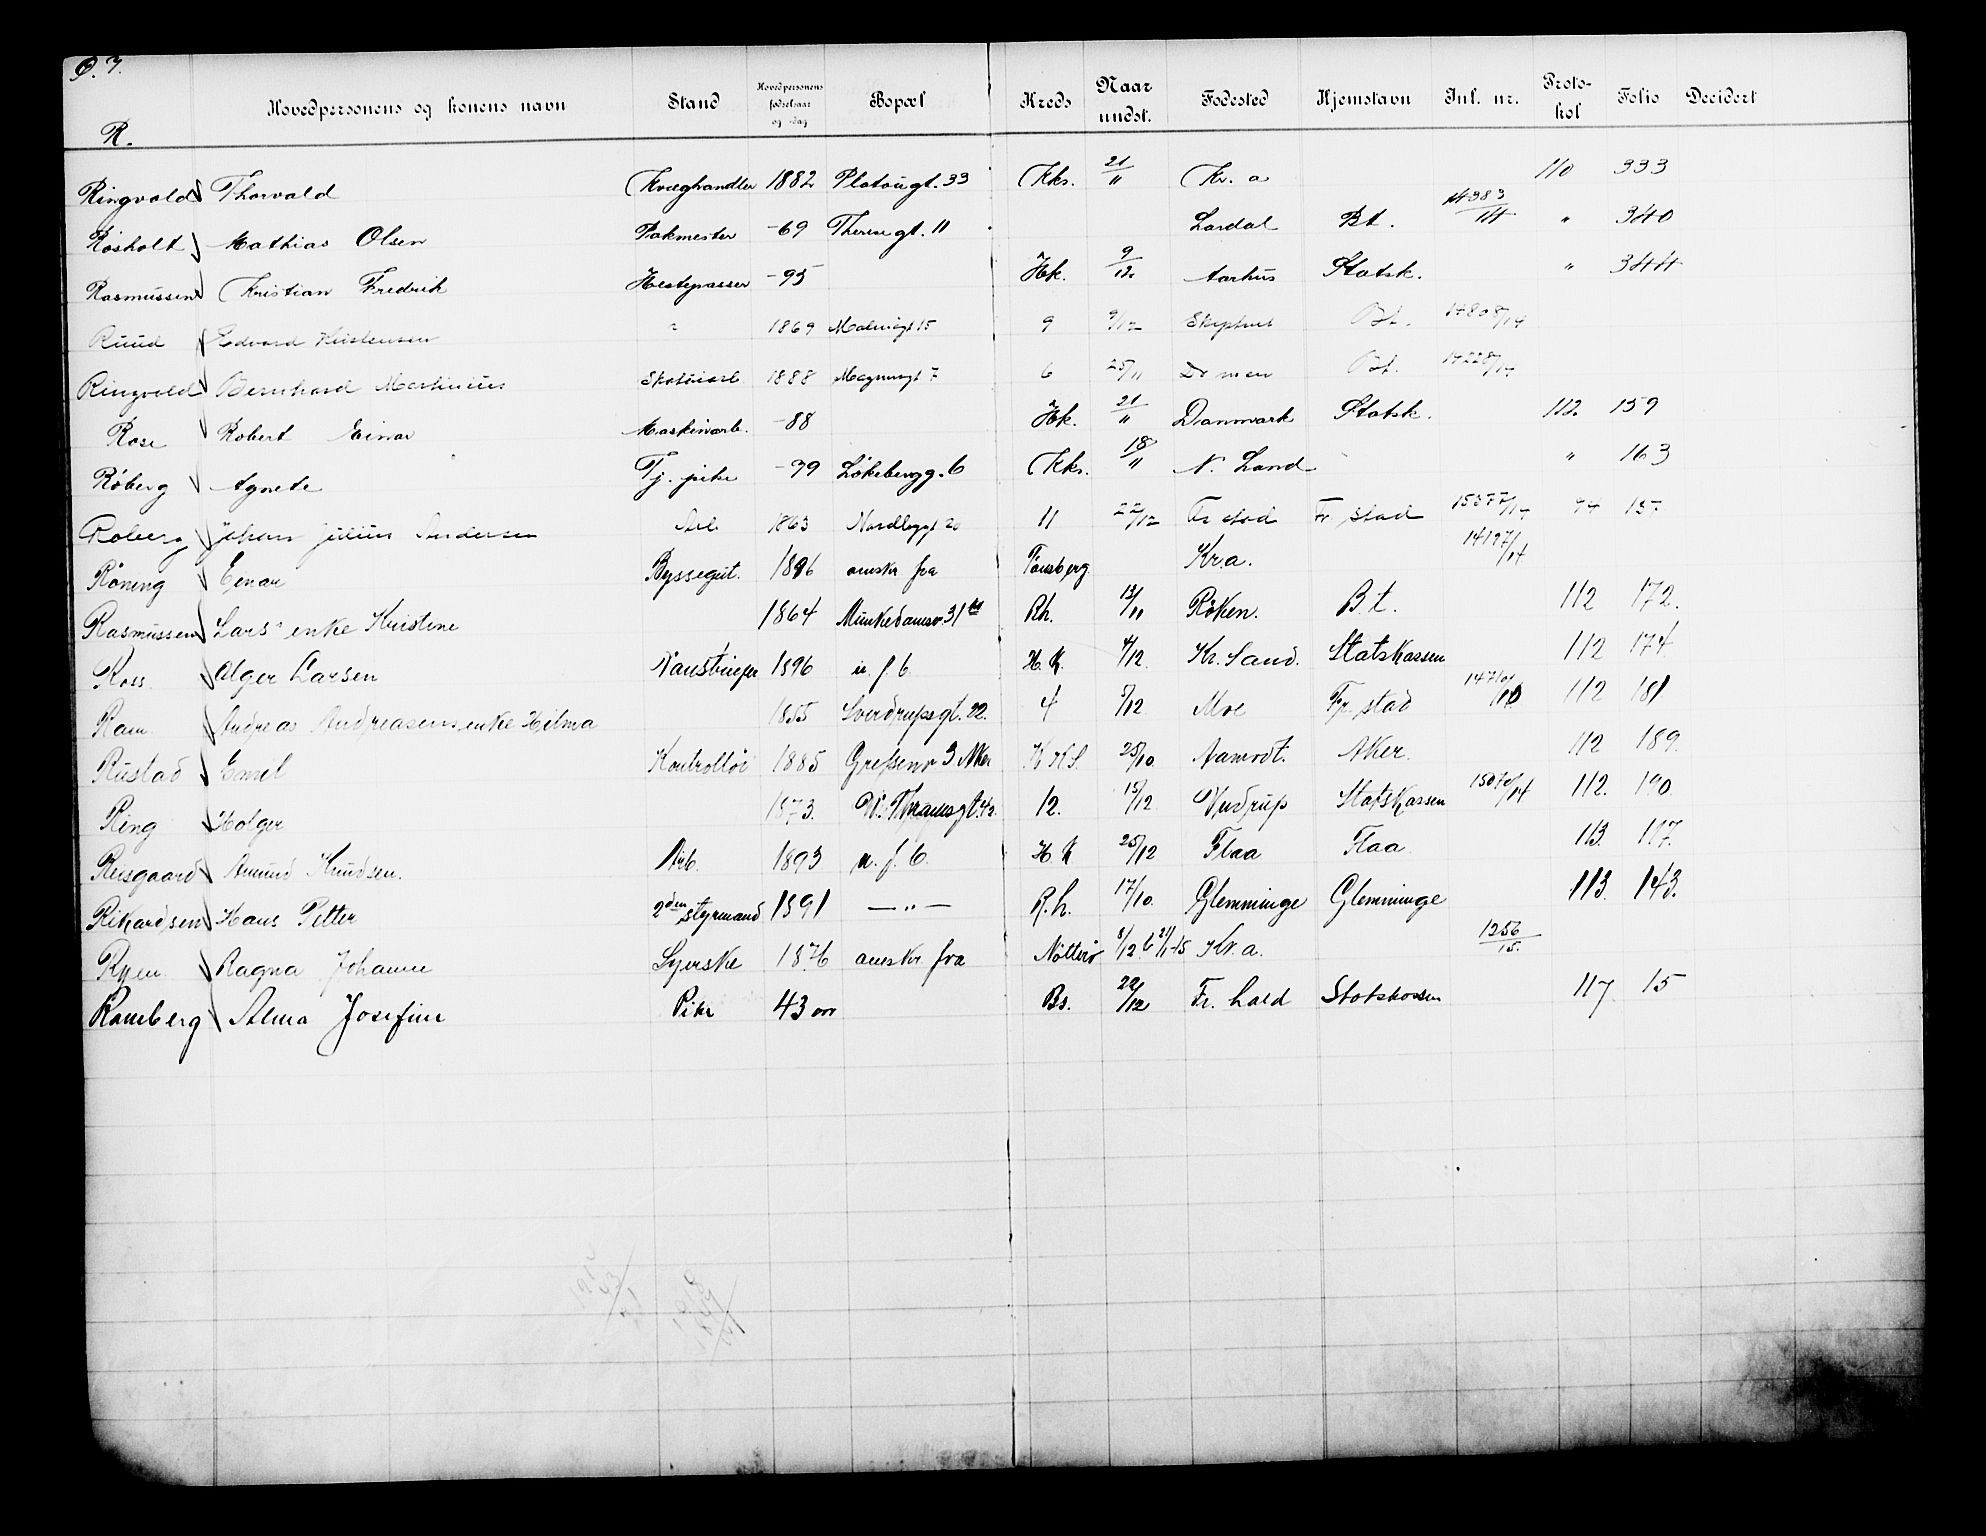 O. 7.
R.
Hovedpersonens og konens navn Stand Hovedpersonens fødselsaar og -dag Bopæl Kreds Naar undst. Fødested Hjemstavn Inl. nr. Proto-kol Folio Decidert
Ringvold Thorvald Kvæghandler 1882 Platougt. 33 Kks. 21/11 Kr. a 110 333
Røsholt Mathias Olsen Pakmester -69 Theresegt. 11 Lardal Bt. 14383/14 " 340
Rasmussen Kristian Fredrik Hestepasser -95 Hk. 9/12 Aarhus Statsk. " 344
Ruud Edvard Kristensen 1869 15 9 9/12 Bt. 14808/14
Ringvold Bernhard Martinius Skotøiarb 1888 Magnusgt 7 6 25/11 Dr men Bt. 14228/14
Rose Robert Einar Maskinarb. -88 Hk. 21/11 Danmark Statsk. 112 159
Røberg Agnete Tj. pike -99 Løkebergg. 6 Kks. 18/11 N. Land " 163
Roberg Johan Julius Andersen Arb 1863 Nordbygt 20 11 22/12 Fr stad Fr. stad 15377/14 94 157
Røning Einar Byssegut. 1896 ønskr fra Tønsberg Kr.a. 14197/14
Rasmussen Lars' enke Kristine 1864 Munkedamsv 31 Rh. 13/11 Røken. B.t. 112 172.
Ross Alger Larsen 1896 u. f. b. H. K. 4/12. Kr. Sand. Statskassen 112 174
Ram Andreas Andreasens enke Hilma 1855 Sverdrupsgt. 22. 4 5/12 Moe Fr. stad 112 181
Rustad Emil Kontrollør 1885 Grefsenv 3 Aker K.K.S. 25/10 Aamodt. Aker. 112 189.
Ring Holger 1873. M. Thranesgt. 42. 12. 15/12 Vindrup Statskassen 15070/14 112. 190.
Reisgaard Amund Knudsen. Arb. 1893 u. f. b. H. K 25/12 Flaa Flaa 113. 117.
Rikardsen Hans Petter 2den styrmand 1891 — " — R. h. 17/10. Glemminge Glemminge 113. 143.
Ryen Ragna Johanne Syerske 1876 ønskr fra Nøtterø 8/12 6 21/1-15 Kr. a. 1256/15.
Ramberg Alma Josefine Pike 43 aar Bs. 22/12 Fr. hald Statskassen 117. 15